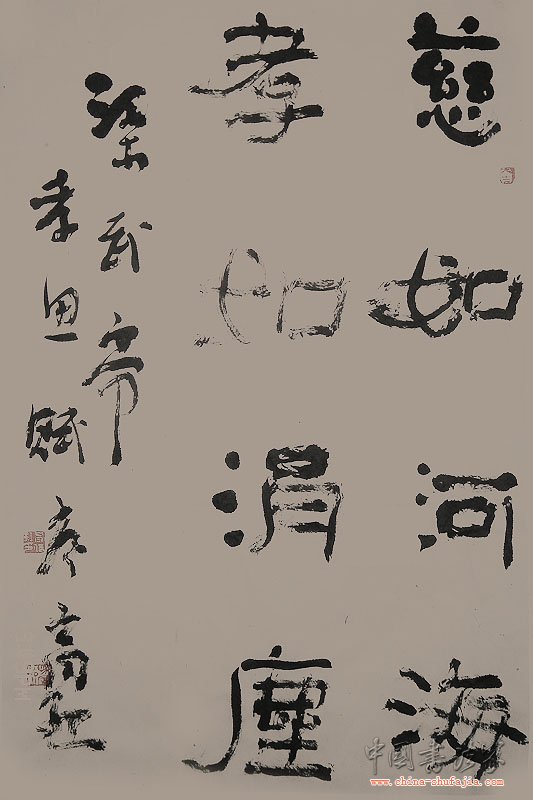 慈如河海
孝如涓塵
梁武帝
孝思賦
www.china-shufajia.com